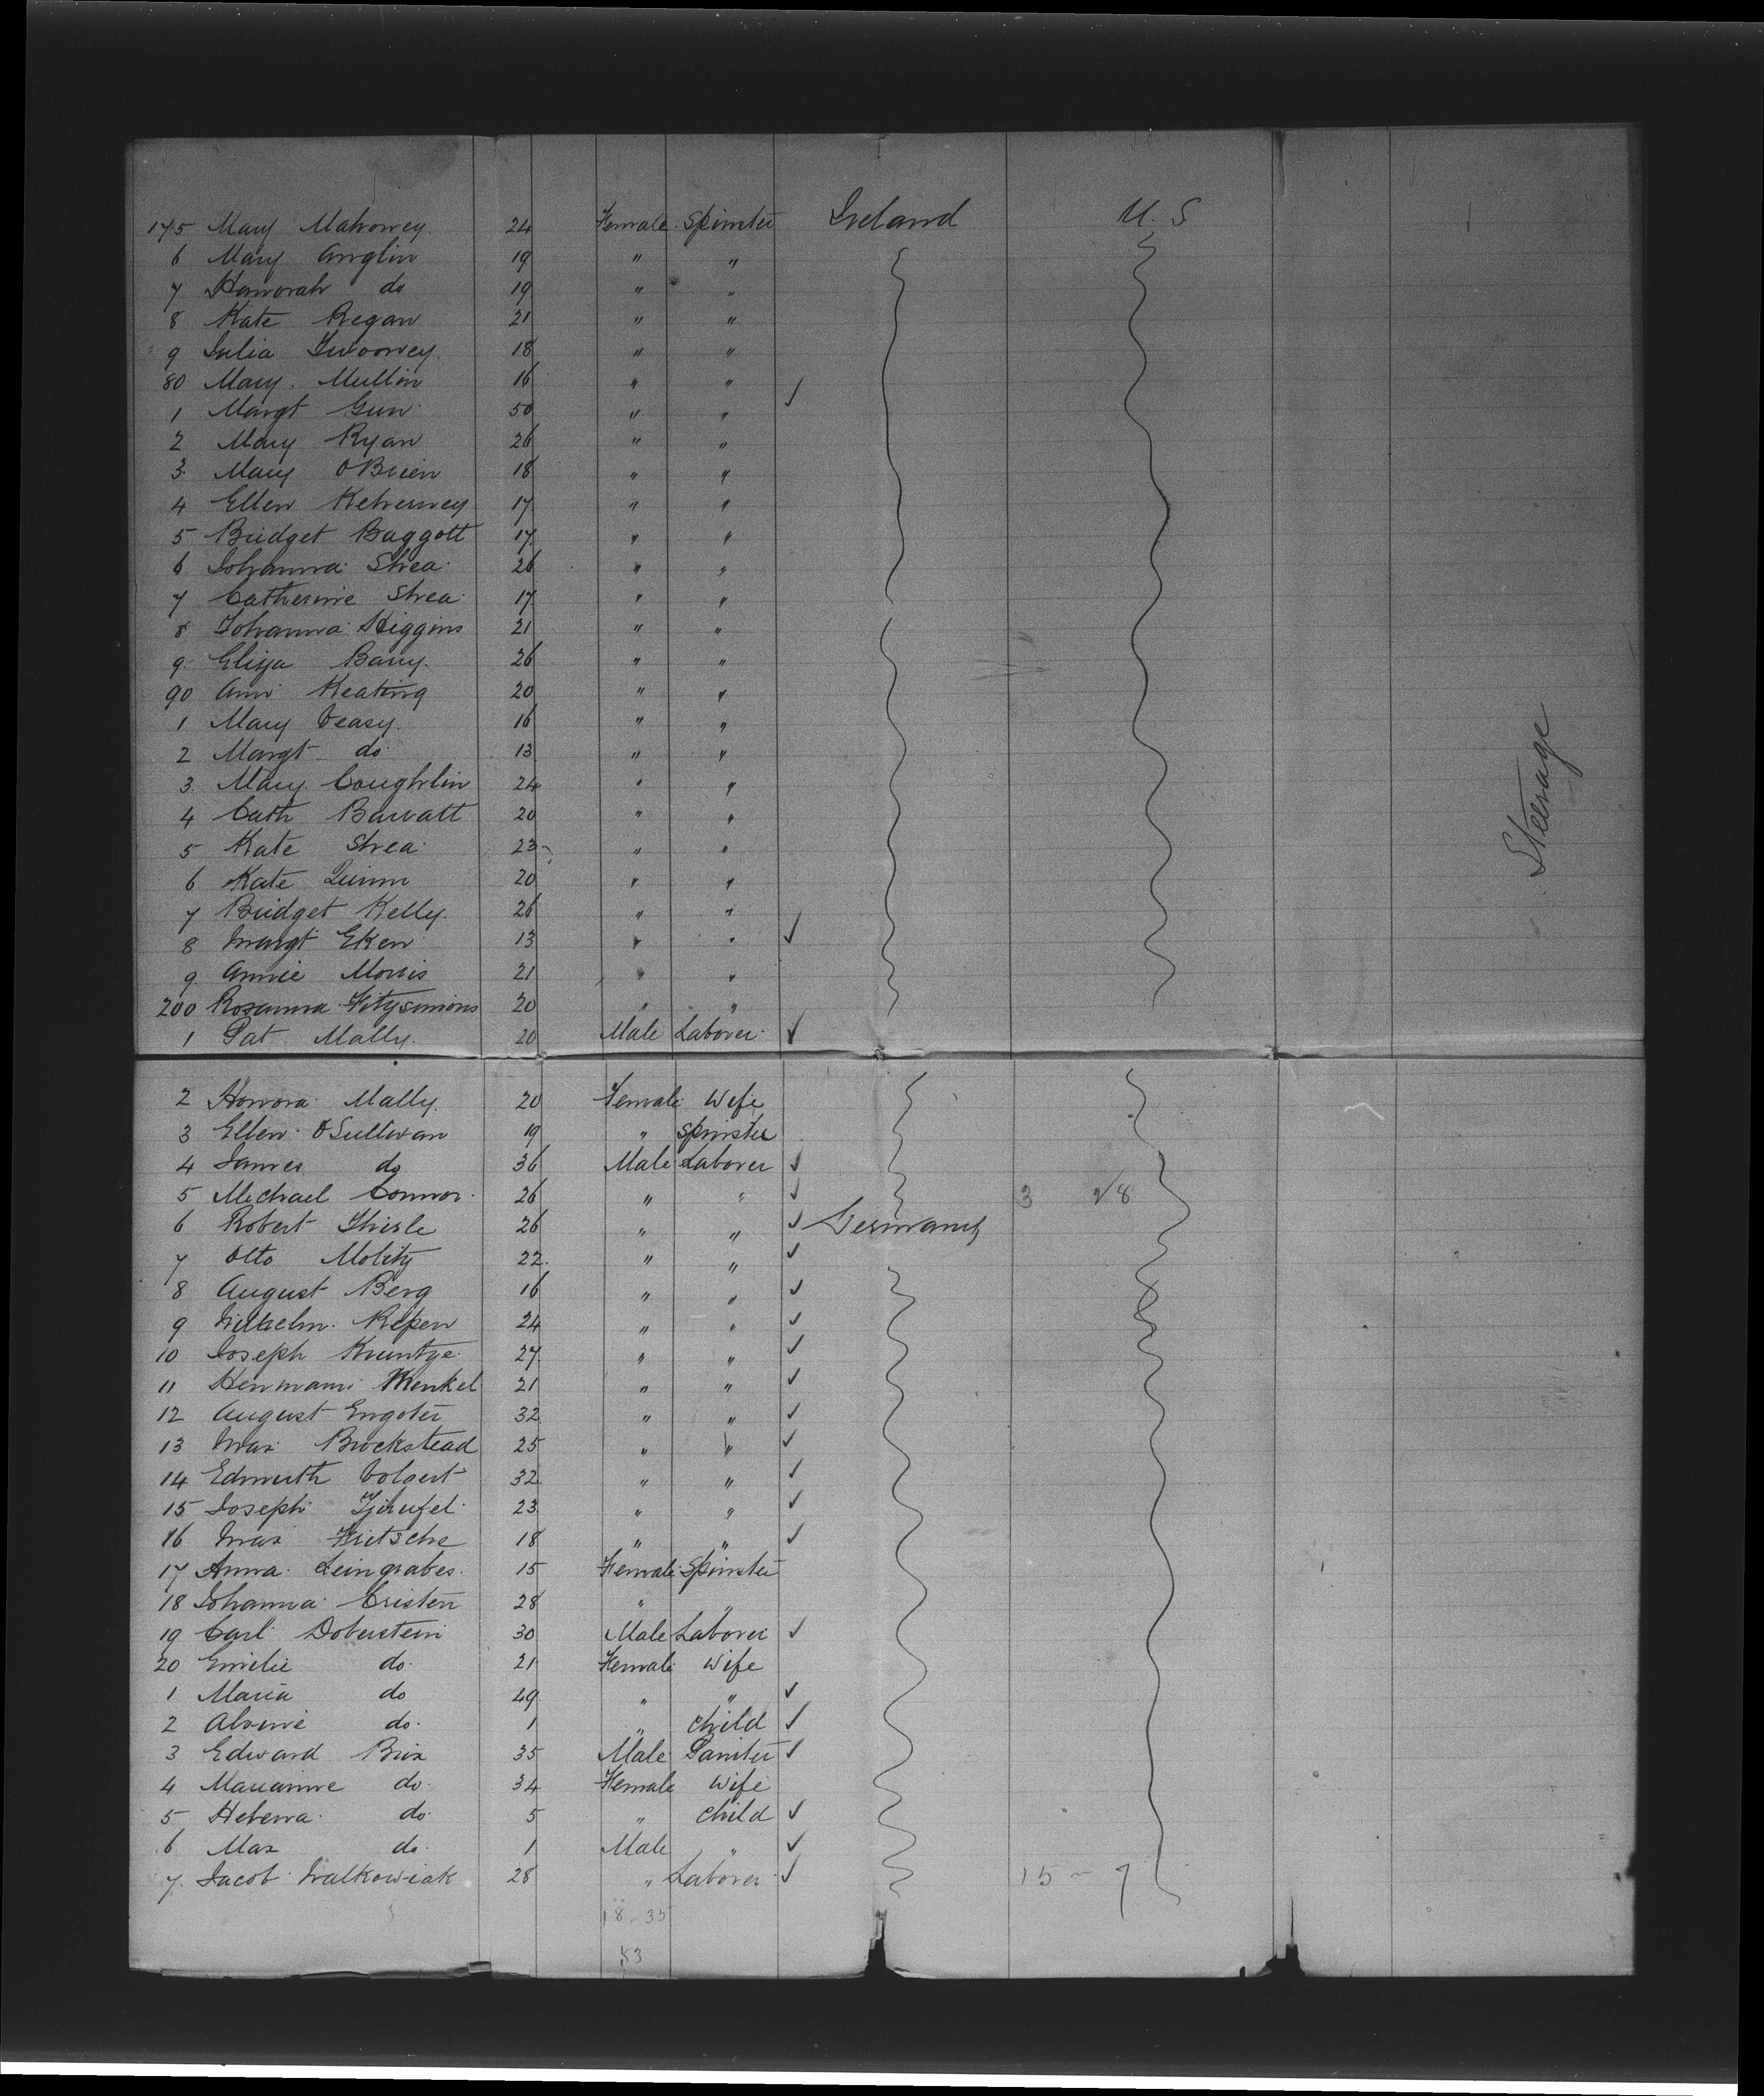 175 Mary Mahoney 24 Female Spinster Ireland U. S
6 Mary Anglin 19 " "
7 Honorah do 19 " "
8 Kate Regan 21 " "
9 Julia Twoomey 18 " "
80 Mary Mullin 16 " " ✓
1 Margt Gun 50 " "
2 Mary Ryan 26 " "
3 Mary OBrien 18 " "
4 Ellen 17 " "
5 Bridget Baggott 17 " "
6 Johanna Shea 26 " "
7 Catherine Shea 17 " "
8 Johanna Higgins 21 " "
9 Eliza Barry 26 " "
90 Ann Keating 20 " "
1 Mary Veasy 16 " "
2 Margt do 13 " "
3 Mary Coughlin 24 " "
4 Cath Barratt 20 " "
5 Kate Shea 23 " "
6 Kate Quinn 20 " "
7 Bridget Kelly 26 " "
8 Margt Eken 13 " " ✓
9 Annie Morris 21 " "
200 Rosanna Fitzsimons 20 " "
1 Pat Mally 20 Male Laborer ✓
2 Honora Mally 20 Female Wife
3 Ellen OSullivan 19 " Spinster
4 James do 36 Male Laborer ✓
5 Michael Connor 26 " " ✓ 3 28
6 Robert Thirle 26 " " ✓ Germany
7 Otto Molitz 22 " " ✓
8 August Berg 16 " " ✓
9 Wilhelm Repen 24 " " ✓
10 Joseph Kuntze 27 " " ✓
11 Hermann Menkel 21 " " ✓
12 August Engoter 32 " " ✓
13 Max Brockstead 25 " " ✓
14 Volgert 32 " " ✓
15 Joseph 23 " " ✓
16 Max Fritsche 18 " " ✓
17 Anna Leingrabes 15 Female Spinster
18 Johanna Cristen 28 " "
19 Carl Doberstein 30 Male Laborer ✓
20 Emilie do 21 Female Wife
1 Maria do 49 " " ✓
2 Alvine do 1 " Child ✓
3 Edward Brix 35 Male Painter ✓
4 Marianne do 34 Female Wife
5 Helena do 5 " Child ✓
6 Max do 1 Male " ✓
7 Jacob Walkowiak 28 " Laborer ✓ 15 - 7
18-35
53
Steerage